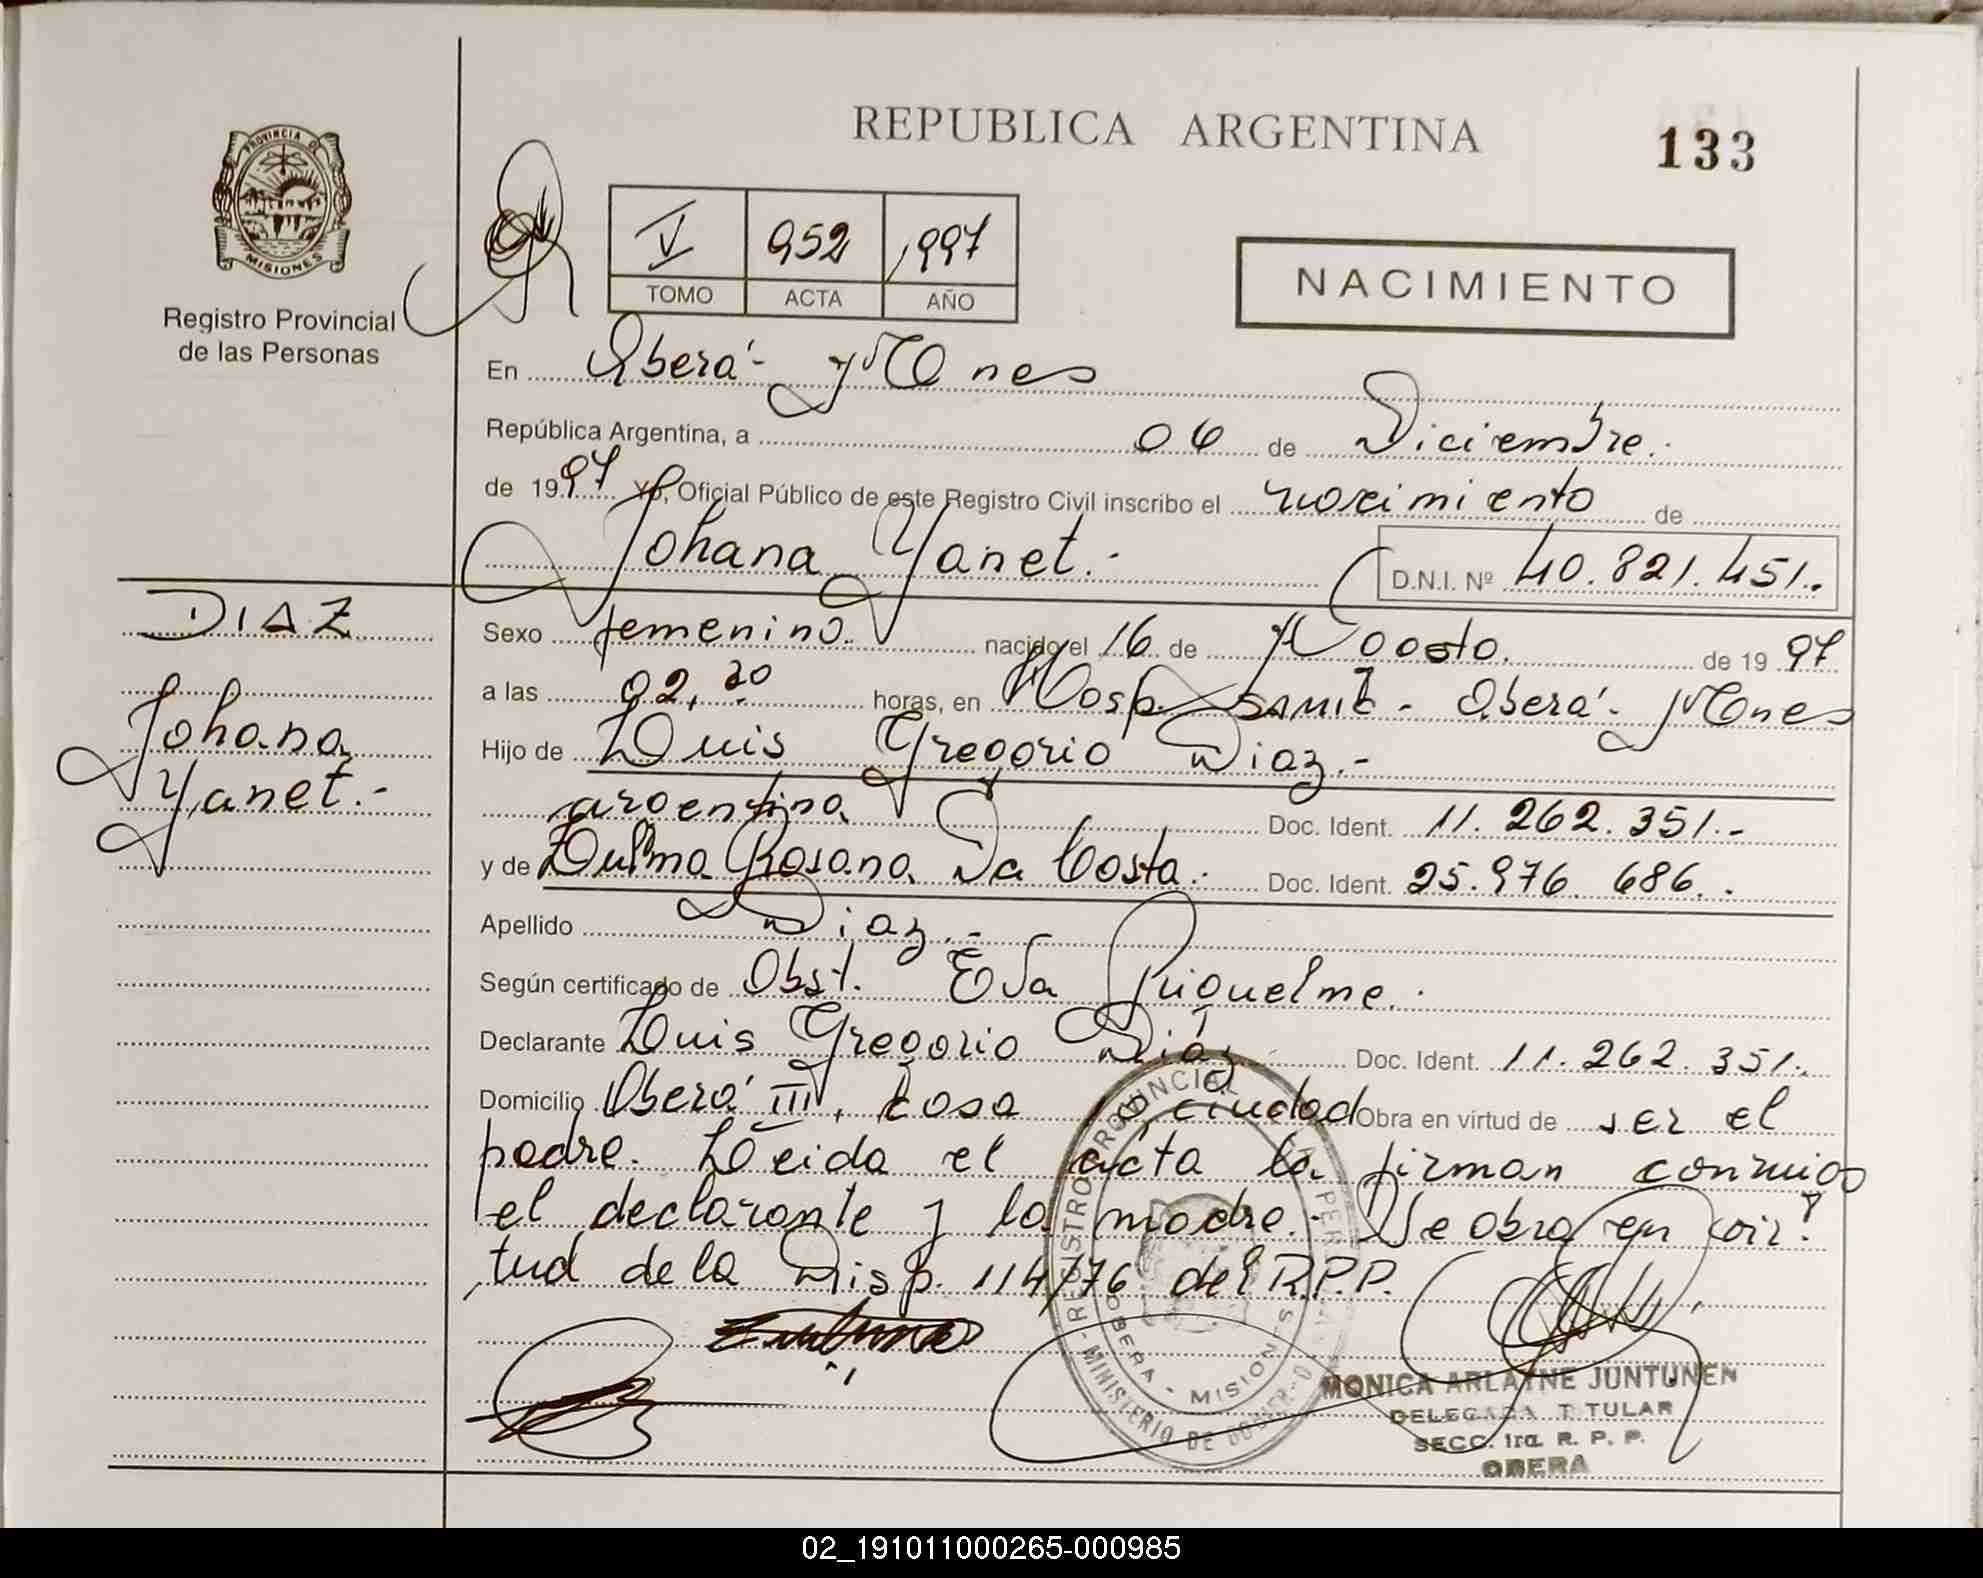 REPUBLICA ARGENTINA
133
PROVINCIA DE
MISIONES
Registro Provincial
de las Personas
V 952 1997
TOMO ACTA AÑO
NACIMIENTO
En Oberá - Mnes
República Argentina, a 06 de Diciembre.
de 1997 Yo, Oficial Público de este Registro Civil inscribo el nacimiento de
Johana Yanet.- D.N.I. Nº 40.821.451.-
DIAZ
Johana
Yanet.-
Sexo femenino. nacido el 16 de Agosto. de 1997
a las 02,30 horas, en Hosp. Samic - Oberá - Mnes
Hijo de Luis Gregorio Diaz.-
argentina Doc. Ident. 11.262.351.-
y de Rosana Da Costa.- Doc. Ident. 25.976.686.-
Apellido Diaz.-
Según certificado de Obst. Eva Riquelme.-
Declarante Luis Gregorio Diaz Doc. Ident. 11.262.351.-
Domicilio Oberá III, casa ciudad Obra en virtud de ser el
padre. Leida el acta la firman conmigo
el declarante y la madre.- Se obra en vir-
tud de la Disp. 114/76 del R.P.P.
REGISTRO PROVINCIAL
OBERA - MISIONES
MINISTERIO DE
MONICA ARLAYNE JUNTUNEN
DELEGADA TITULAR
SECC. 1ra. R. P. P.
OBERA
02_191011000265-000985